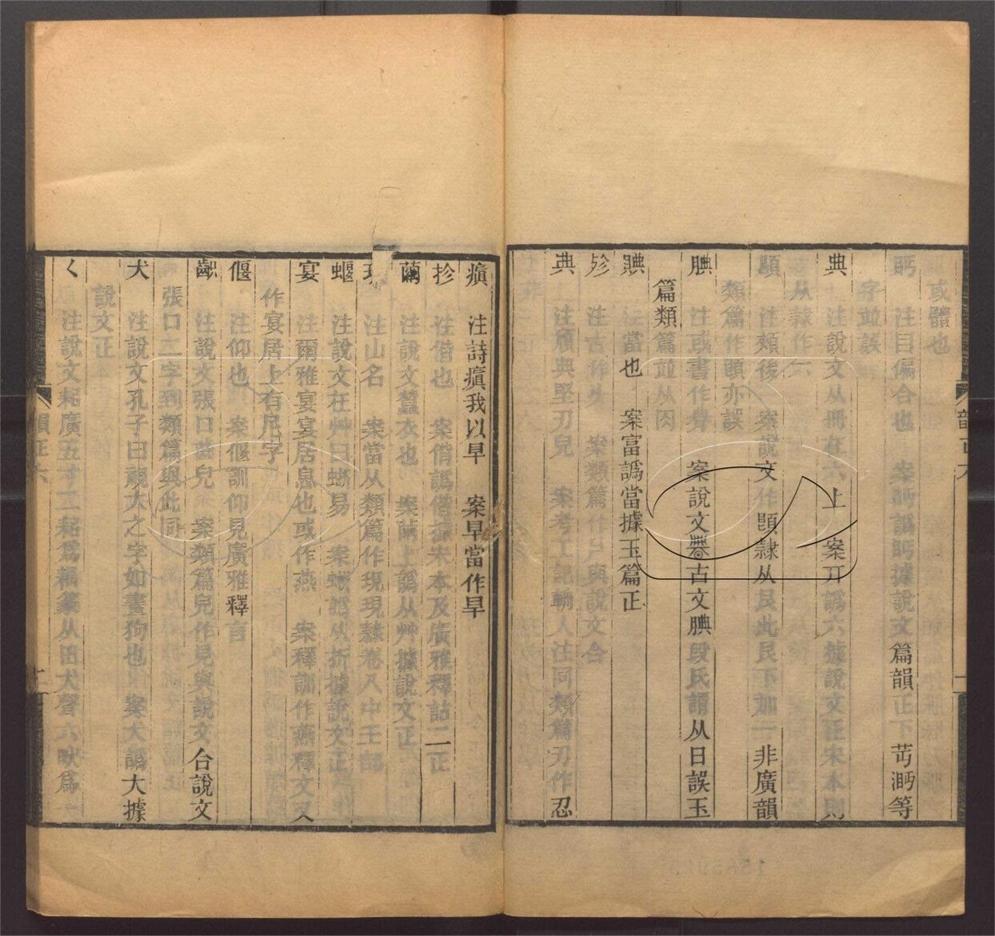 或體也
眄 注目偏合也 案 據說文 篇韻正下 芇 等
字並
典 注說文从冊在六上 案丌譌六據說文正宋本則
从隸作六
顯 注頰後 案說文作顯隸从 此民下加一 非廣韻
類篇作 亦誤
腆 注或書作 案說文 古文腆段氏謂从日誤玉
篇類篇 篇並从肉
注富也 案富譌當據玉篇正
注古作 案類篇作 與說文合
典 注頎典堅刃皃 案考工記輈人注同類篇刃作忍
瘨 注詩瘨我以旱 案早當作旱
抮 注偝也 案偝譌 據宋本及廣雅釋詁二正
繭 注說文蠶衣也 案繭上譌从艸據說文正
注山名 案當从類篇作現現隸卷八中王部
蝘 注說文在艸曰蜥易 案 譌从折據說文正
宴 注爾雅宴宴居息也或作燕 案釋訓作燕釋文又
作宴居上有尻字
偃 注仰也 案偃訓仰見廣雅釋言
齞 注說文張口 皃 案類篇皃作見與說文合說文
張口二字到類篇與此同
犬 注說文孔子曰視犬之字如畫狗也 案大譌大據
說文正
く 注說文耜廣五寸二耜爲耦篆从田犬聲六畎爲一
韻正六